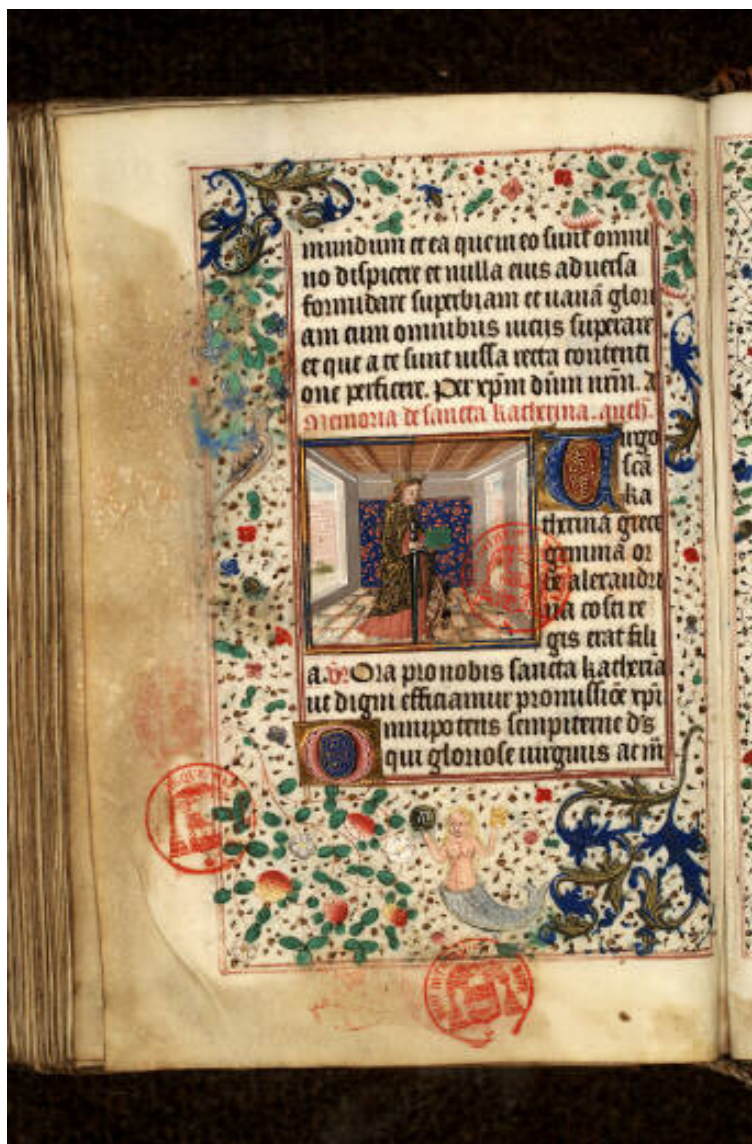 mundum et ea que in eo sunt omni
no dispicere et nulla eius aduersa
formidare superbiam et uanā glori
am cum omnibus uiciis superare
et que a te sunt iussa recta contenti
one perficere. Per xp̄m dn̄m nr̄m. A
Memoria de sancta katherina. anth.
Uirgo
scā
ka
therina grece
gemma
alexandri
na costi re
gis erat fili
a. Ora pro nobis sancta katheria
ut digni efficiamur promissiōe xp̄i
Omnipotens sempiterne ds
qui gloriose uirginis ac m̄